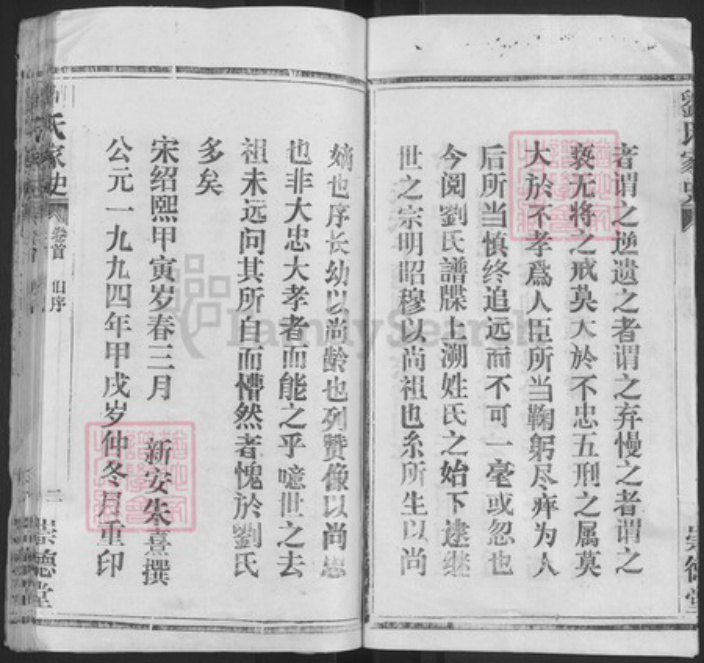 劉氏家史
者谓之逆遗之者谓之弃慢之者谓之
亵无将之戒莫大於不忠五刑之属莫
大於不孝爲人臣所当鞠躬尽瘁为人
后所当慎终追远而不可一毫或忽也
今阅劉氏譜牒上溯姓氏之始下逮继
世之宗明昭穆以尚祖也糸所生以尚
崇德堂
嫡也序长幼以尚龄也列赞像以尚忠
也非大忠大孝者而能之乎噫世之去
祖未远问其所自而懵然者愧於劉氏
多矣
宋绍熙甲寅岁春三月 新安朱熹撰
公元一九九四年甲戌岁仲冬月重印
氏家史 卷首 旧序 二 崇德堂
FamilySearch